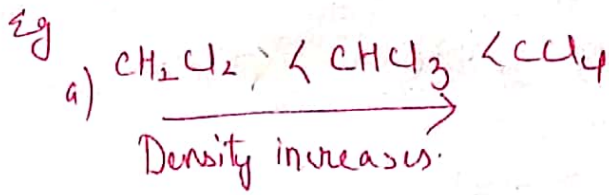 Eg
a) CH₂Cl₂, < CHCl₃ < CCl₄
Density increases.